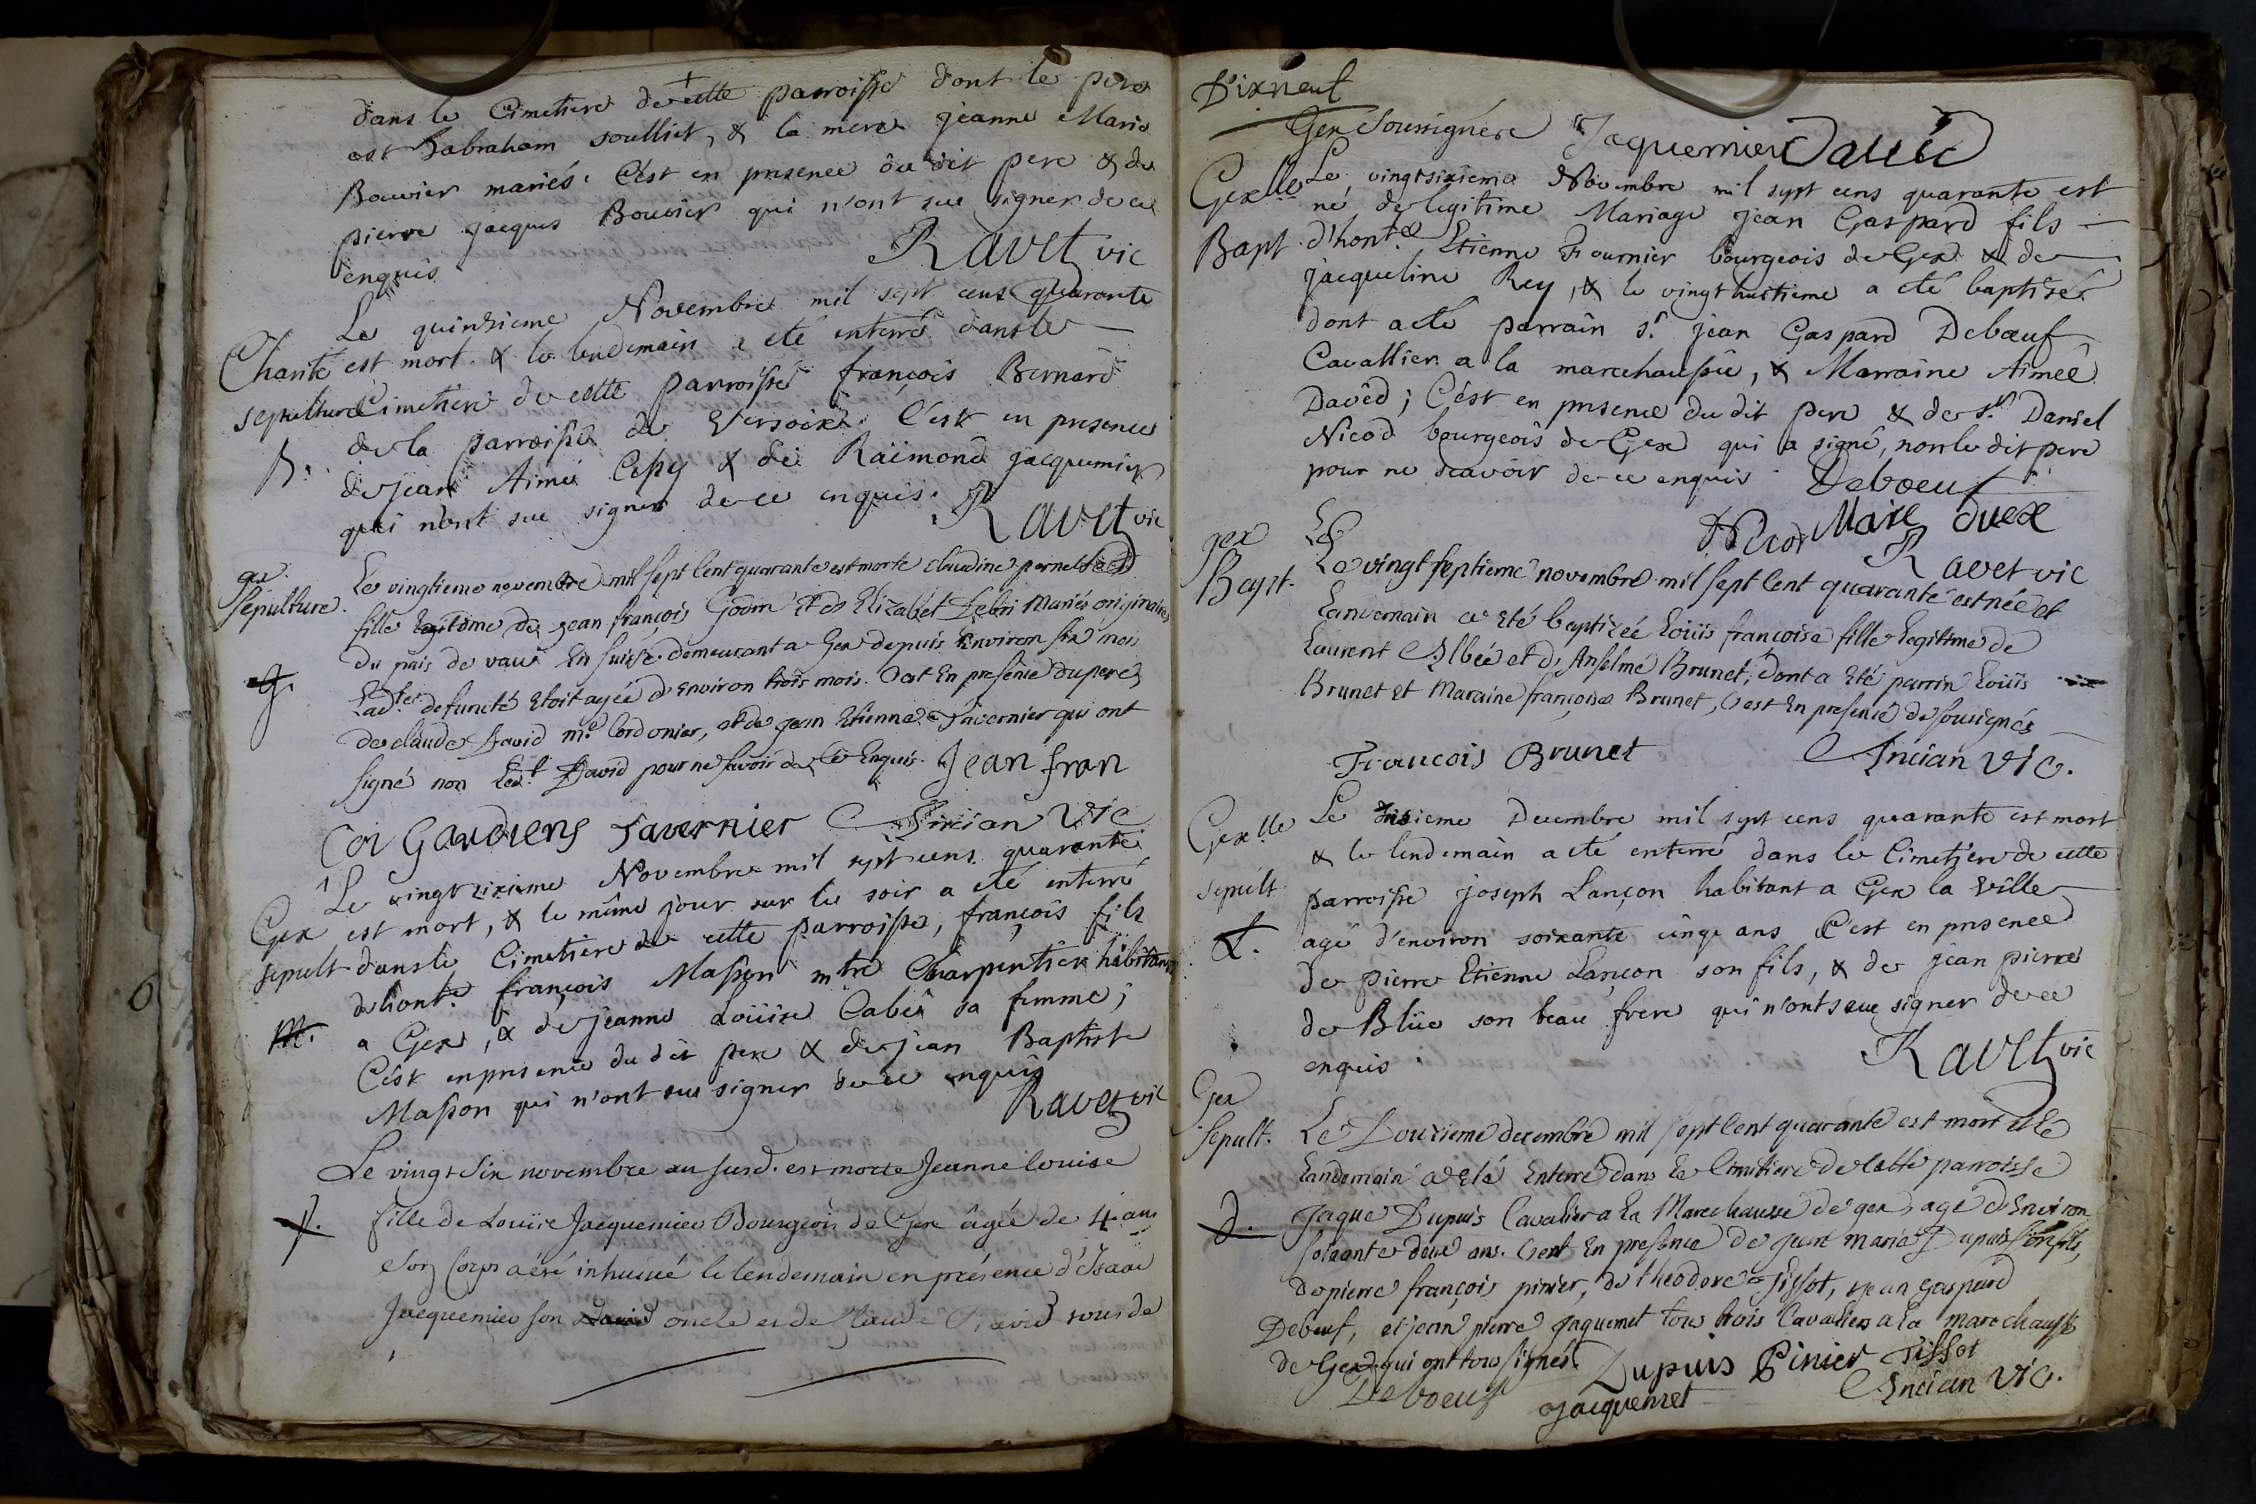 dans le Cimetiere de cette parroisse dont le pere
est habraham soulliet, & la mere jeanne Marie
Bouvier mariés. C'est en presence du dit pere & de
pierre jacques Bouvier qui n'ont sue signer de ce
enquis.
Ravet vic
Le quinzieme Novembre mil sept cens quarante
Charité est mort & le lendemain a eté enterré dans le
sepulture Cimetiere de cette parroisse françois Bernard
B. de la parroisse de Versoix. C'est en presence
de jean Aimé & de Raimond jacquemier
qui n'ont sue signer de ce enquis.
Ravet vic
gex
Sepulture. Le vingtieme novembre mil sept Cent quarante est morte claudine pernette
fille legitime de jean françois Godin Et de Elizabet Mariés originaires
du païs de vaux En suisse demeurant a Gex depuis Environ six mois
g. Ladte defuncte Etoit agée d'environ trois mois. C'est En presence du pere,
de claude David me Cordonier, et de jean Etienne Tavernier qui ont
signé non Ledt David pour ne savoir de ce Enquis. Jean fran
Coi Gaudiens Tavernier Ancian Vic
Le vingt sixieme Novembre mil sept cens quarante
Gex est mort, & le même jour sur le soir a eté enterré
sepult dans le Cimetiere de cette parroisse, françois fils
d'honte françois Masson mtre Charpentier habitant
m. a Gex, & de jeanne Loüise sa femme;
C'est en presence du dit pere & de jean Baptiste
Masson qui n'ont sue signer de ce enquis
Ravet vic
Le vingt Six novembre an susd. est morte Jeanne louise
J. fille de Louïse Jacquemier Bourgeois de Gex âgée de 4. ans
Son Corps a été inhumé le lendemain en présence d'Isaac
Jacquemier son oncle et de Claude David tous de
Dixneuf
Gex Soussignés Jacquemier David
Gex lle Le vingtsixieme Novembre mil sept cens quarante est
né de legitime Mariage jean Gaspard fils
Bapt. d'honte Etienne Fournier bourgeois de Gex & de
jacqueline Rey, & le vingthuitieme a eté baptisé
dont a eté parrain sr jean Gaspard Debœuf
Cavallier a la marechaussée, & Marraine Aimée
David; C'est en presence du dit pere & de sr Daniel
Nicod bourgeois de Gex qui a signé, non le dit pere
pour ne scavoir de ce enquis. Deboeuf
Nicod Maire
Ravet vic
gex
Bapt. Le vingt septieme novembre mil sept Cent quarante est née et
Landemain a Eté baptizée Loüis françoise fille legitime de
Laurent et d'Anselme Brunet, dont a Eté parrin Loüis
Brunet et Maraine françoise Brunet, C'est En presence de sousignés
François Brunet Ancian Vic.
Gex lle Le Decembre mil sept cens quarante est mort
& le lendemain a eté enterré dans le Cimetiere de cette
sepult parroisse joseph Lançon habitant a Gex la ville
L. agé d'environ soixante cinq ans C'est en presence
de pierre Etienne Lançon son fils, & de jean pierre
de Blüe son beau frere qui n'ont sue signer de ce
enquis.
Ravet vic
Gex
Sepult. Le Douzieme decembre mil sept Cent quarante est mort et le
Landemain a eté Enterré dans le Cimitiere de Cette parroisse
d. Jaque Dupuis Cavalier a la Marechaussé de gex, agé d'Environ
soixante deux ans. C'est En presence de jean marie Dupuis son fils,
de pierre françois pinier, de theodore Tissot, jean gaspard
Debœuf, et jean pierre Jaquemet tous trois Cavaliers a la marechaussé
de Gex qui ont tous signés. Dupuis Pinier Tissot
Deboeuf Jacquemet Ancian Vic.